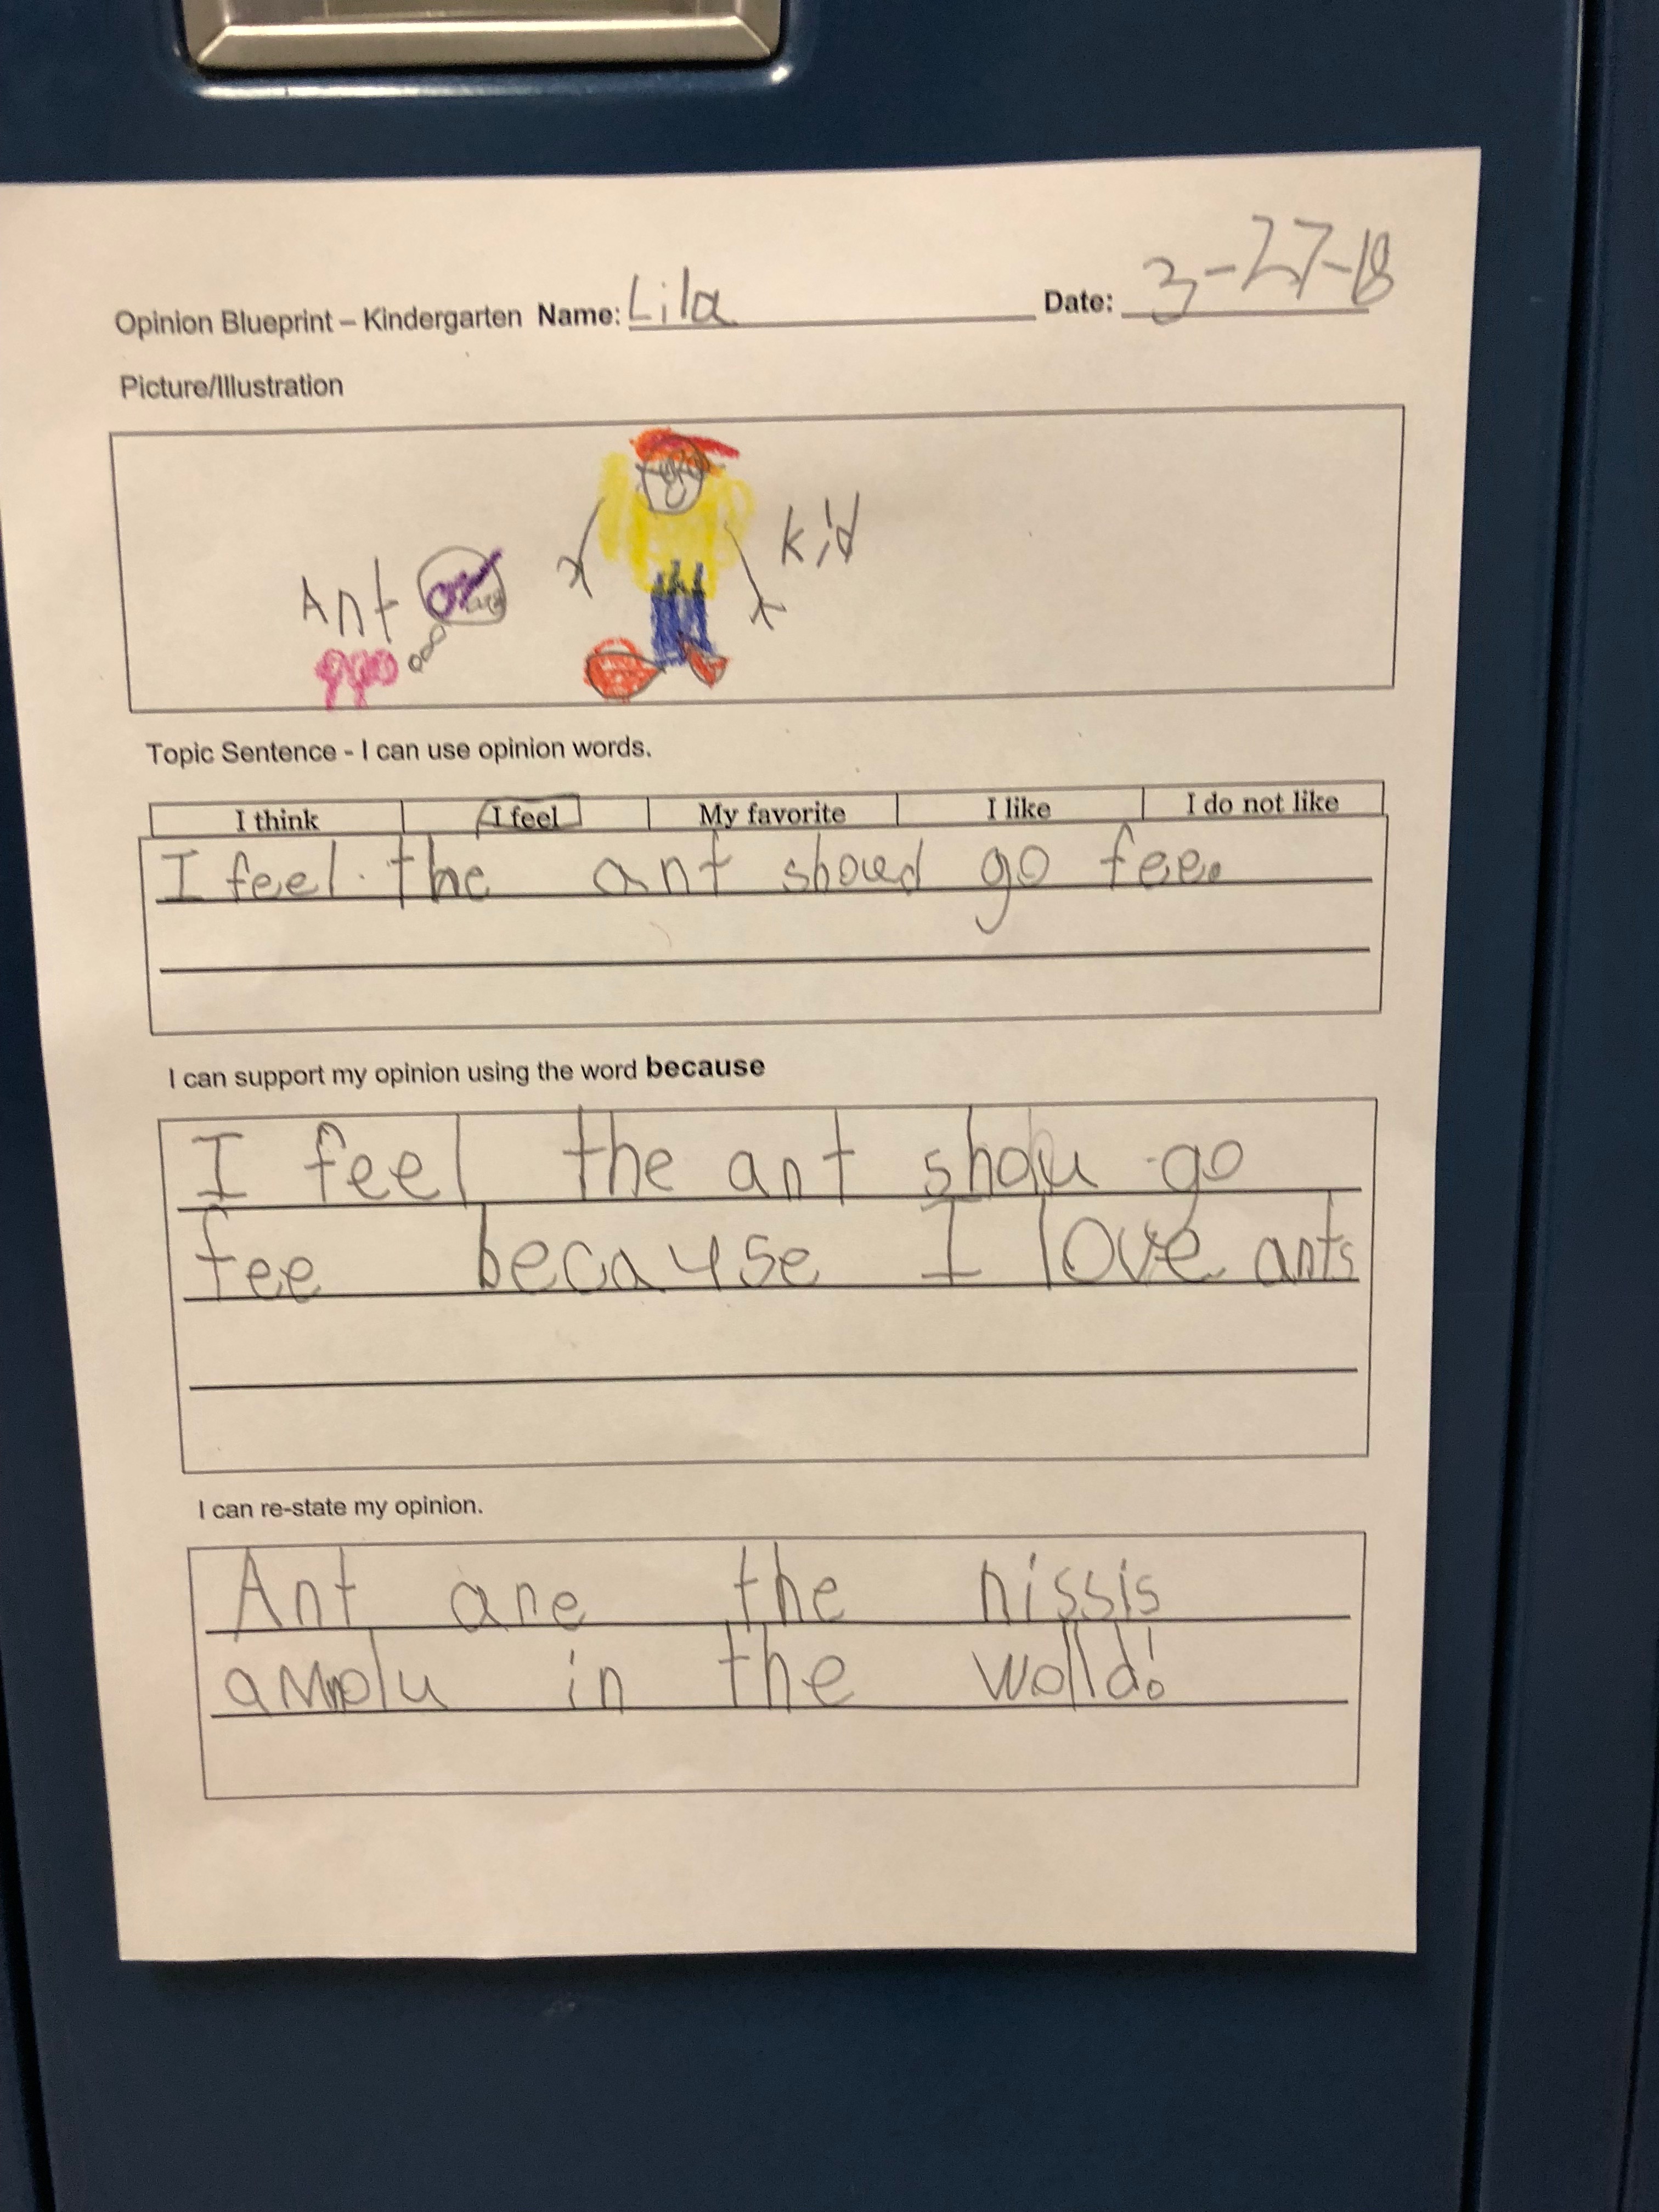 Opinion Blueprint – Kindergarten Name: Lila Date: 3-27-18
Picture/Illustration
kid
Ant
Topic Sentence - I can use opinion words.
I think I feel My favorite I like I do not like
I feel the ant shoued go fee.
I can support my opinion using the word because
I feel the ant shou go
fee because I love ants
I can re-state my opinion.
Ant are the nissis
in the wolld!